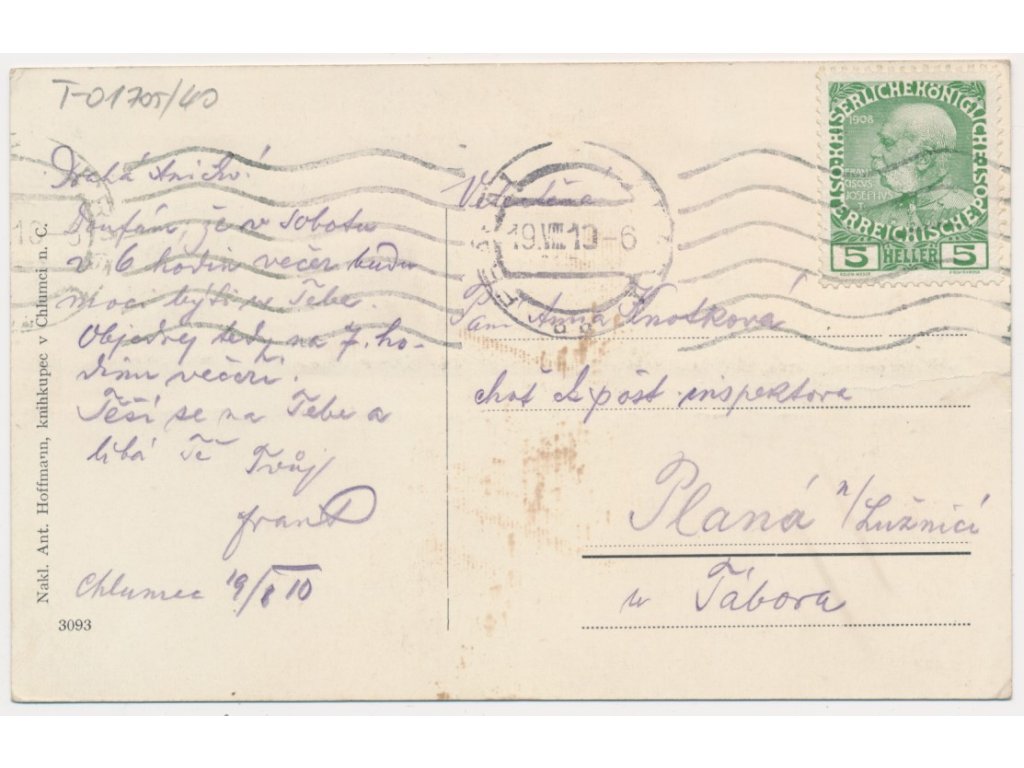 T-01705/40
Drahá Aničko!
Doufám, že v sobotu
v 6 hodin večer budu
moci býti u Tebe.
Objednej tedy na 7. ho-
dinu večeři.
Těší se na Tebe a
líbá Tě Tvůj
Chlumec 19/8 10
Nakl. Ant. Hoffmann, knihkupec v Chlumci n. C.
3093
19.VIII.10-6
KAISERLICHEKÖNIGLICHE
ÖSTERREICHISCHEPOST
1908
FRAN
CISCVS
JOSEPHVS
5 HELLER 5
Velectěná
Paní Anna Knotková
chot pošt. inspektora
Planá n/Lužnicí
u Tábora